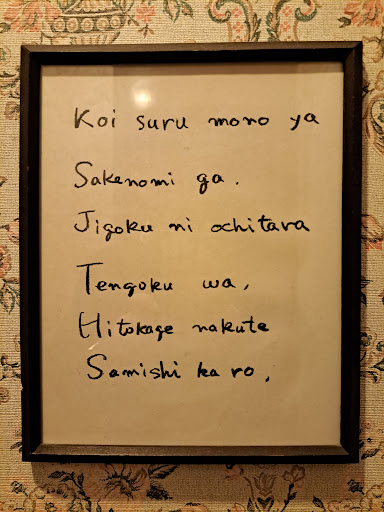 Koi suru mono ya
Sakenomi ga.
Jigoku ni ochitara
Tengoku wa,
Hitokage nakute
Samishi ka ro,